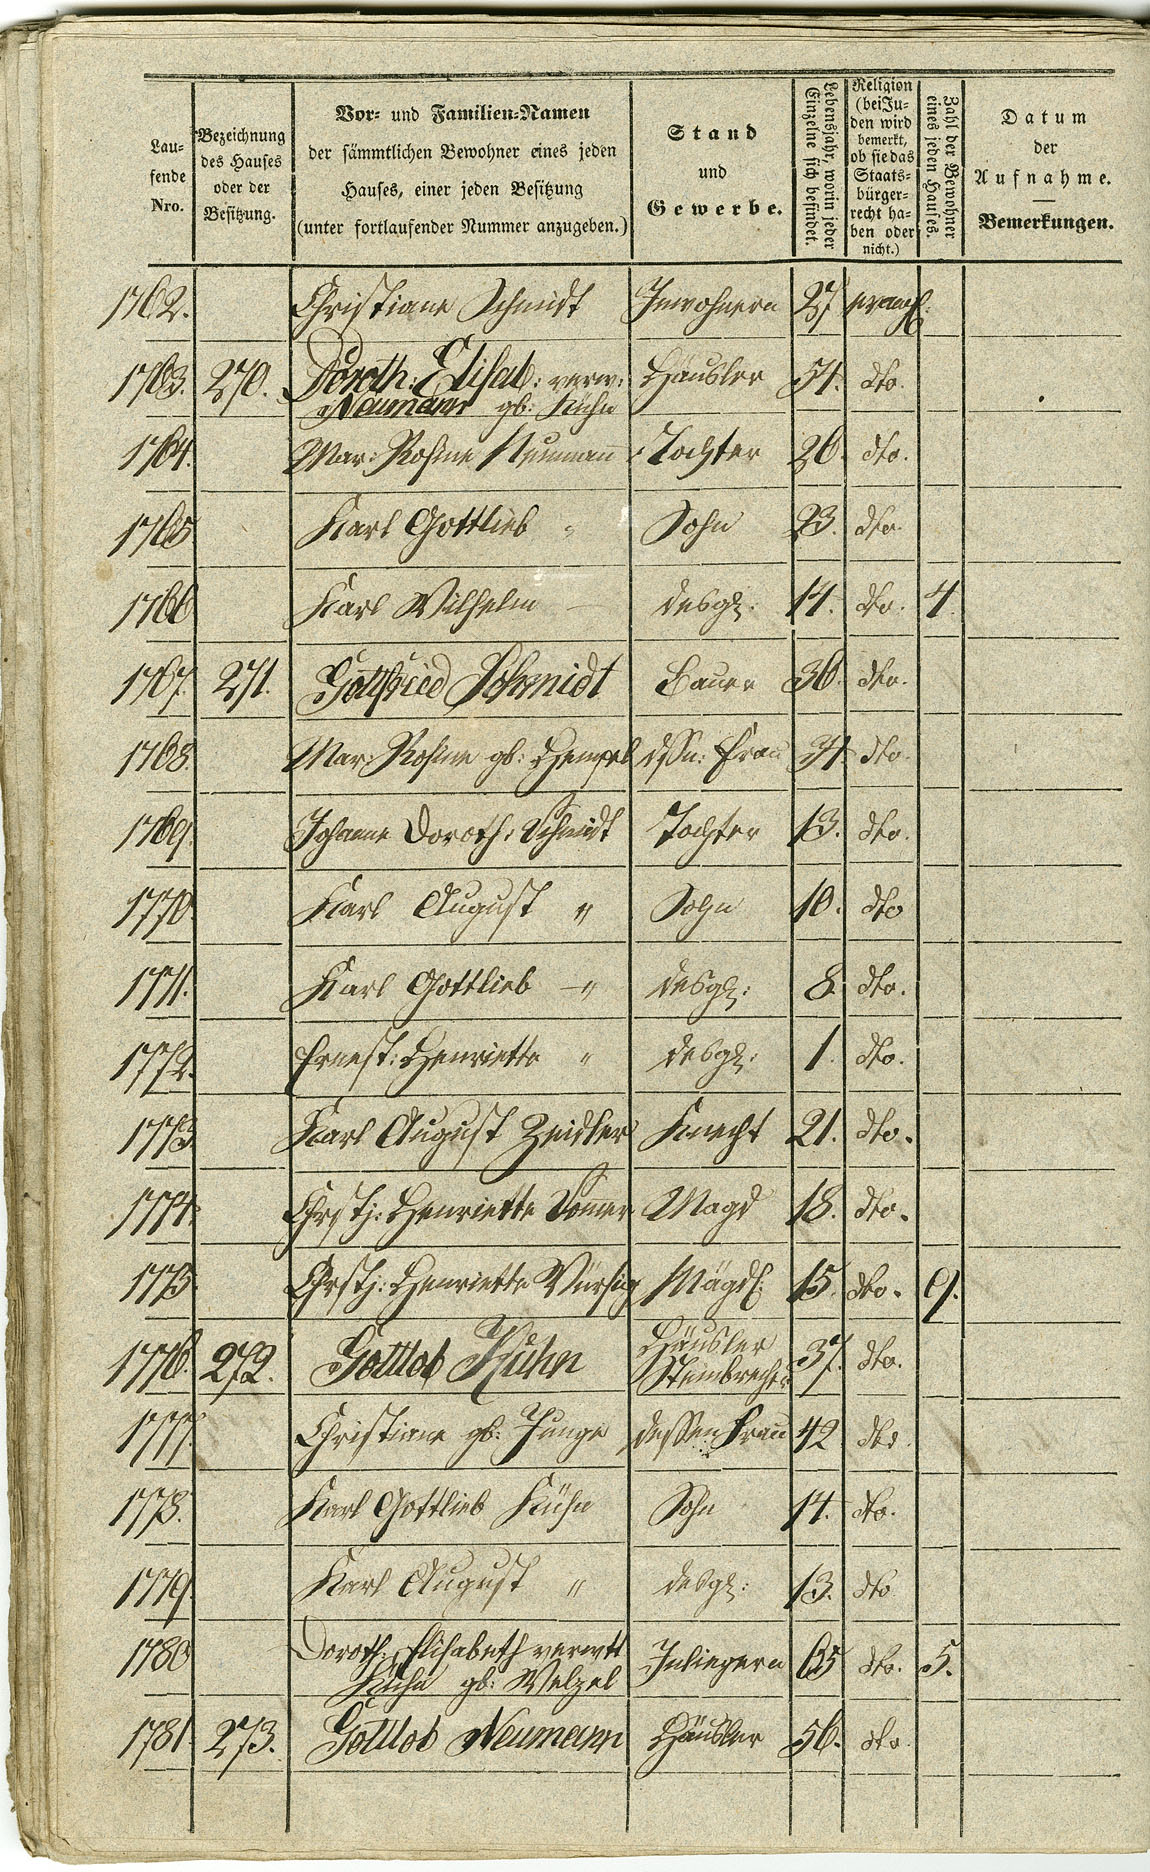 Laufende Nro.
Bezeichnung des Hauses oder der Besitzung.
Vor- und Familien-Namen
der sämmtlichen Bewohner eines jeden
Hauses, einer jeden Besitzung
(unter fortlaufender Nummer anzugeben.)
Stand
und
Gewerbe.
Lebensjahr, worin jeder Einzelne sich befindet.
Religion (bei Juden wird bemerkt, ob sie das Staatsbürgerrecht haben oder nicht.)
Zahl der Bewohner eines jeden Hauses.
Datum
der
Aufnahme.
Bemerkungen.
1762. Christiane Schmidt Inwohnern 27. evangl.
1763. 270. Doroth: Elisab: verw: Häusler 54. dto.
Neumann gb: Kühn
1764. Mar: Rosine Neumann Tochter 26. dto.
1765 Karl Gottlieb " Sohn 23. dto
1766 Karl Wilhelm — desgl: 14. dto. 4.
1767. 271. Gottfried Schmidt Bauer 36. dto.
1768. Mar: Rosine gb: Hempel dssn: Frau 34. dto.
1769. Johanne Doroth: Schmidt Tochter 13. dto.
1770. Karl August " Sohn 10. dto
1771. Karl Gottlieb —" desgl: 8. dto.
1772. Ernest: Henriette " desgl: 1. dto.
1773 Karl August Zeidler Knecht 21. dto.
1774. Chrstj: Henriette Sommer Magd 18. dto.
1775. Chrstj: Henriette Würsig Mägdl: 15. dto. 9.
1776. 272. Gottlob Kühn Häusler 37. dto.
Steinbrecher
1777. Christiane gb: Junge dessen Frau 42 dto.
1778. Karl Gottlieb Kühn Sohn 14. dto.
1779. Karl August " desgl: 13. dto
1780 Doroth: Elisabeth verwtt Inliegern 65 dto. 5.
Kühn gb: Welzel
1781. 273. Gottlob Neumann Häusler 56. dto